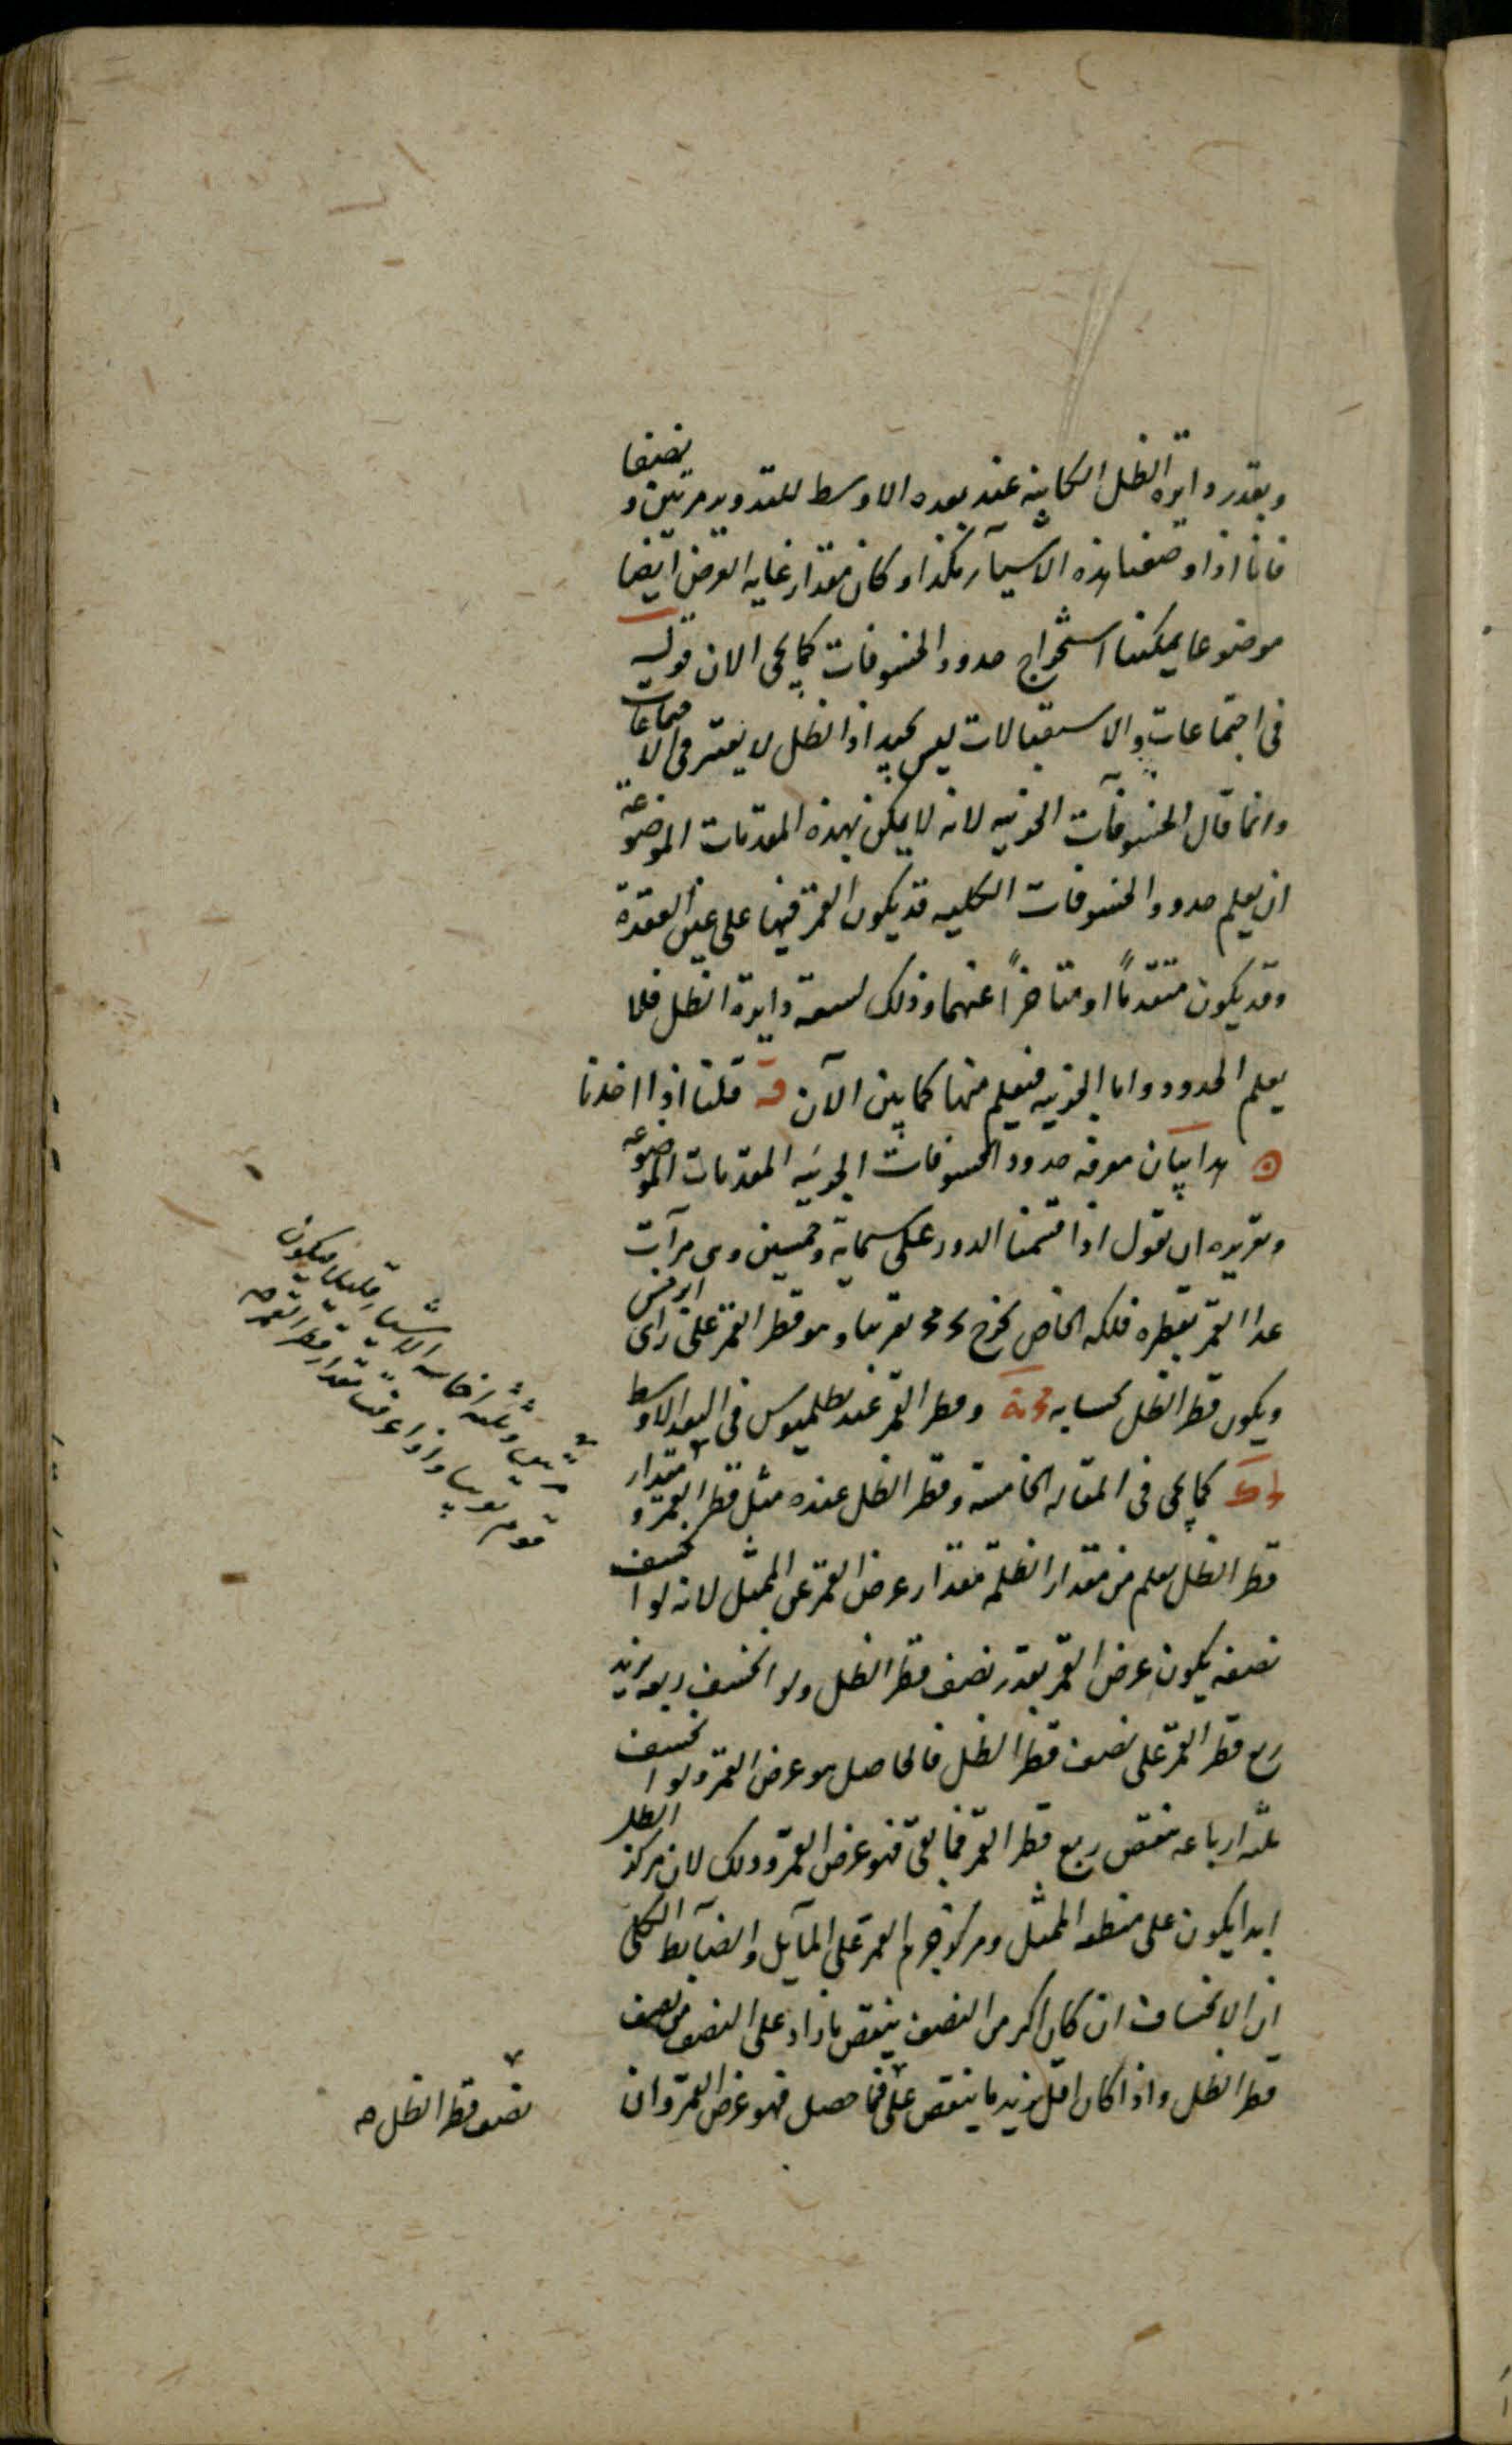 وبقدر دايرة الظل الكاينه عند بعده الاوسط للتدوير مرتين و نصفا
فانا اذا وضعنا هذه الاشيآء هكذا وكان مقدار غايه العرض ايضا
موضوعا يمكننا استخراج حدود الخسوفات كما يجى الان قوله
فى اجتماعات والاستقبالات ليس بجيد اذ الظل لا يعتبر فى الاجتماعات
وانما قال الخسوفآت الجزئيه لانه لا يمكن بهذه المقدمات الموضوعة
ان يعلم حدود الخسوفات الكليه قد يكون القمر فيها على عين العقدة
وقد يكون متقدماً او متاخراً عنهما وذلك لسعة دايرة الظل فلا
يعلم الحدود واما الجزئيه فيعلم منها كما يبين الآن قه قلنا اذا اخذنا
هذا بيان معرفه حدود الخسوفات الجزئيه المقدمات الموضوعه
وتقريره ان نقول اذا قسمنا الدور على ستمايه وخمسين وهى مرآت
عد القمر بقطره فلكه الخاص يخرج تقريبا وهو قطر القمر على راى ابرخس
ويكون قطر الظل بحسابه وقطر القمر عند بطلميوس فى البعد الاوسط
كما يجى فى المقاله الخامسة وقطر الظل عنده مثل قطر القمر و مقدار
قطر الظل يعلم من مقدار الظلمة مقدار عرض القمر عن الممثل لانه لو انخسف
نصفه يكون عرض القمر بقدر نصف قطر الظل ولو انخسف ربعه يزيد
ربع قطر القمر على نصف قطر الظل فالحاصل هو عرض القمر ولو انخسف
ثلثه ارباعه ينقص ربع قطر القمر فما بقى فهو عرض القمر وذلك لان مركز الظل
ابدا يكون على منطقه الممثل ومركز جرم القمر على المآيل والضآبط الكلى
ان الانخساف ان كان اكبر من النصف ينقص ما زاد على النصف من نصف
قطر الظل واذا كان اقل يزيد ما ينقص على فما حصل فهو عرض القمر وان
نصف قطر الظل صح
مرتين وثلثه اخماسه الاشيئا قليلا فيكون
واذا عرفت مقدار قطر القمر صح